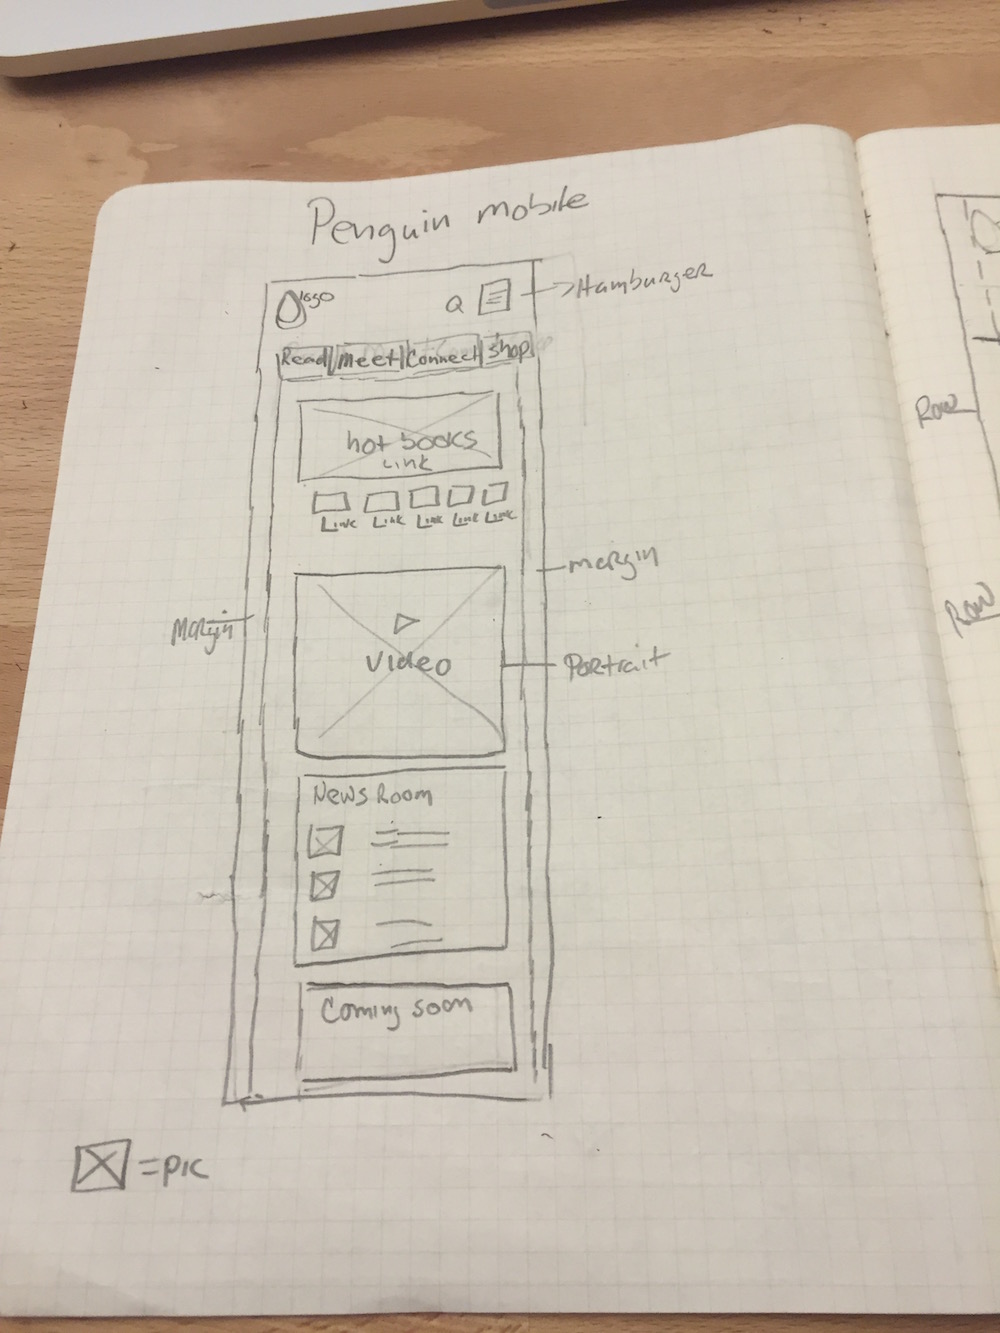 Penguin mobile
logo
Q
Hamburger
Read Meet Connect Shop
hot books
Link
Link Link Link Link Link
margin
Margin
Video
Portrait
News Room
Coming soon
= pic
Row
Row